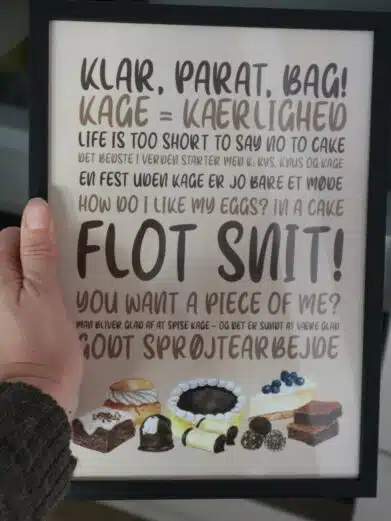 KLAR, PARAT, BAG!
KAGE = KAERLIGHED
LIFE IS TOO SHORT TO SAY NO TO CAKE
DET BEDSTE I VERDEN STARTER MED K: KYS, KNUS OG KAGE
EN FEST UDEN KAGE ER JO BARE ET MØDE
HOW DO I LIKE MY EGGS? IN A CAKE
FLOT SNIT!
YOU WANT A PIECE OF ME?
MAN BLIVER GLAD AF AT SPISE KAGE - OG DET ER SUNDT AT VAERE GLAD
GODT SPRØJTEARBEJDE